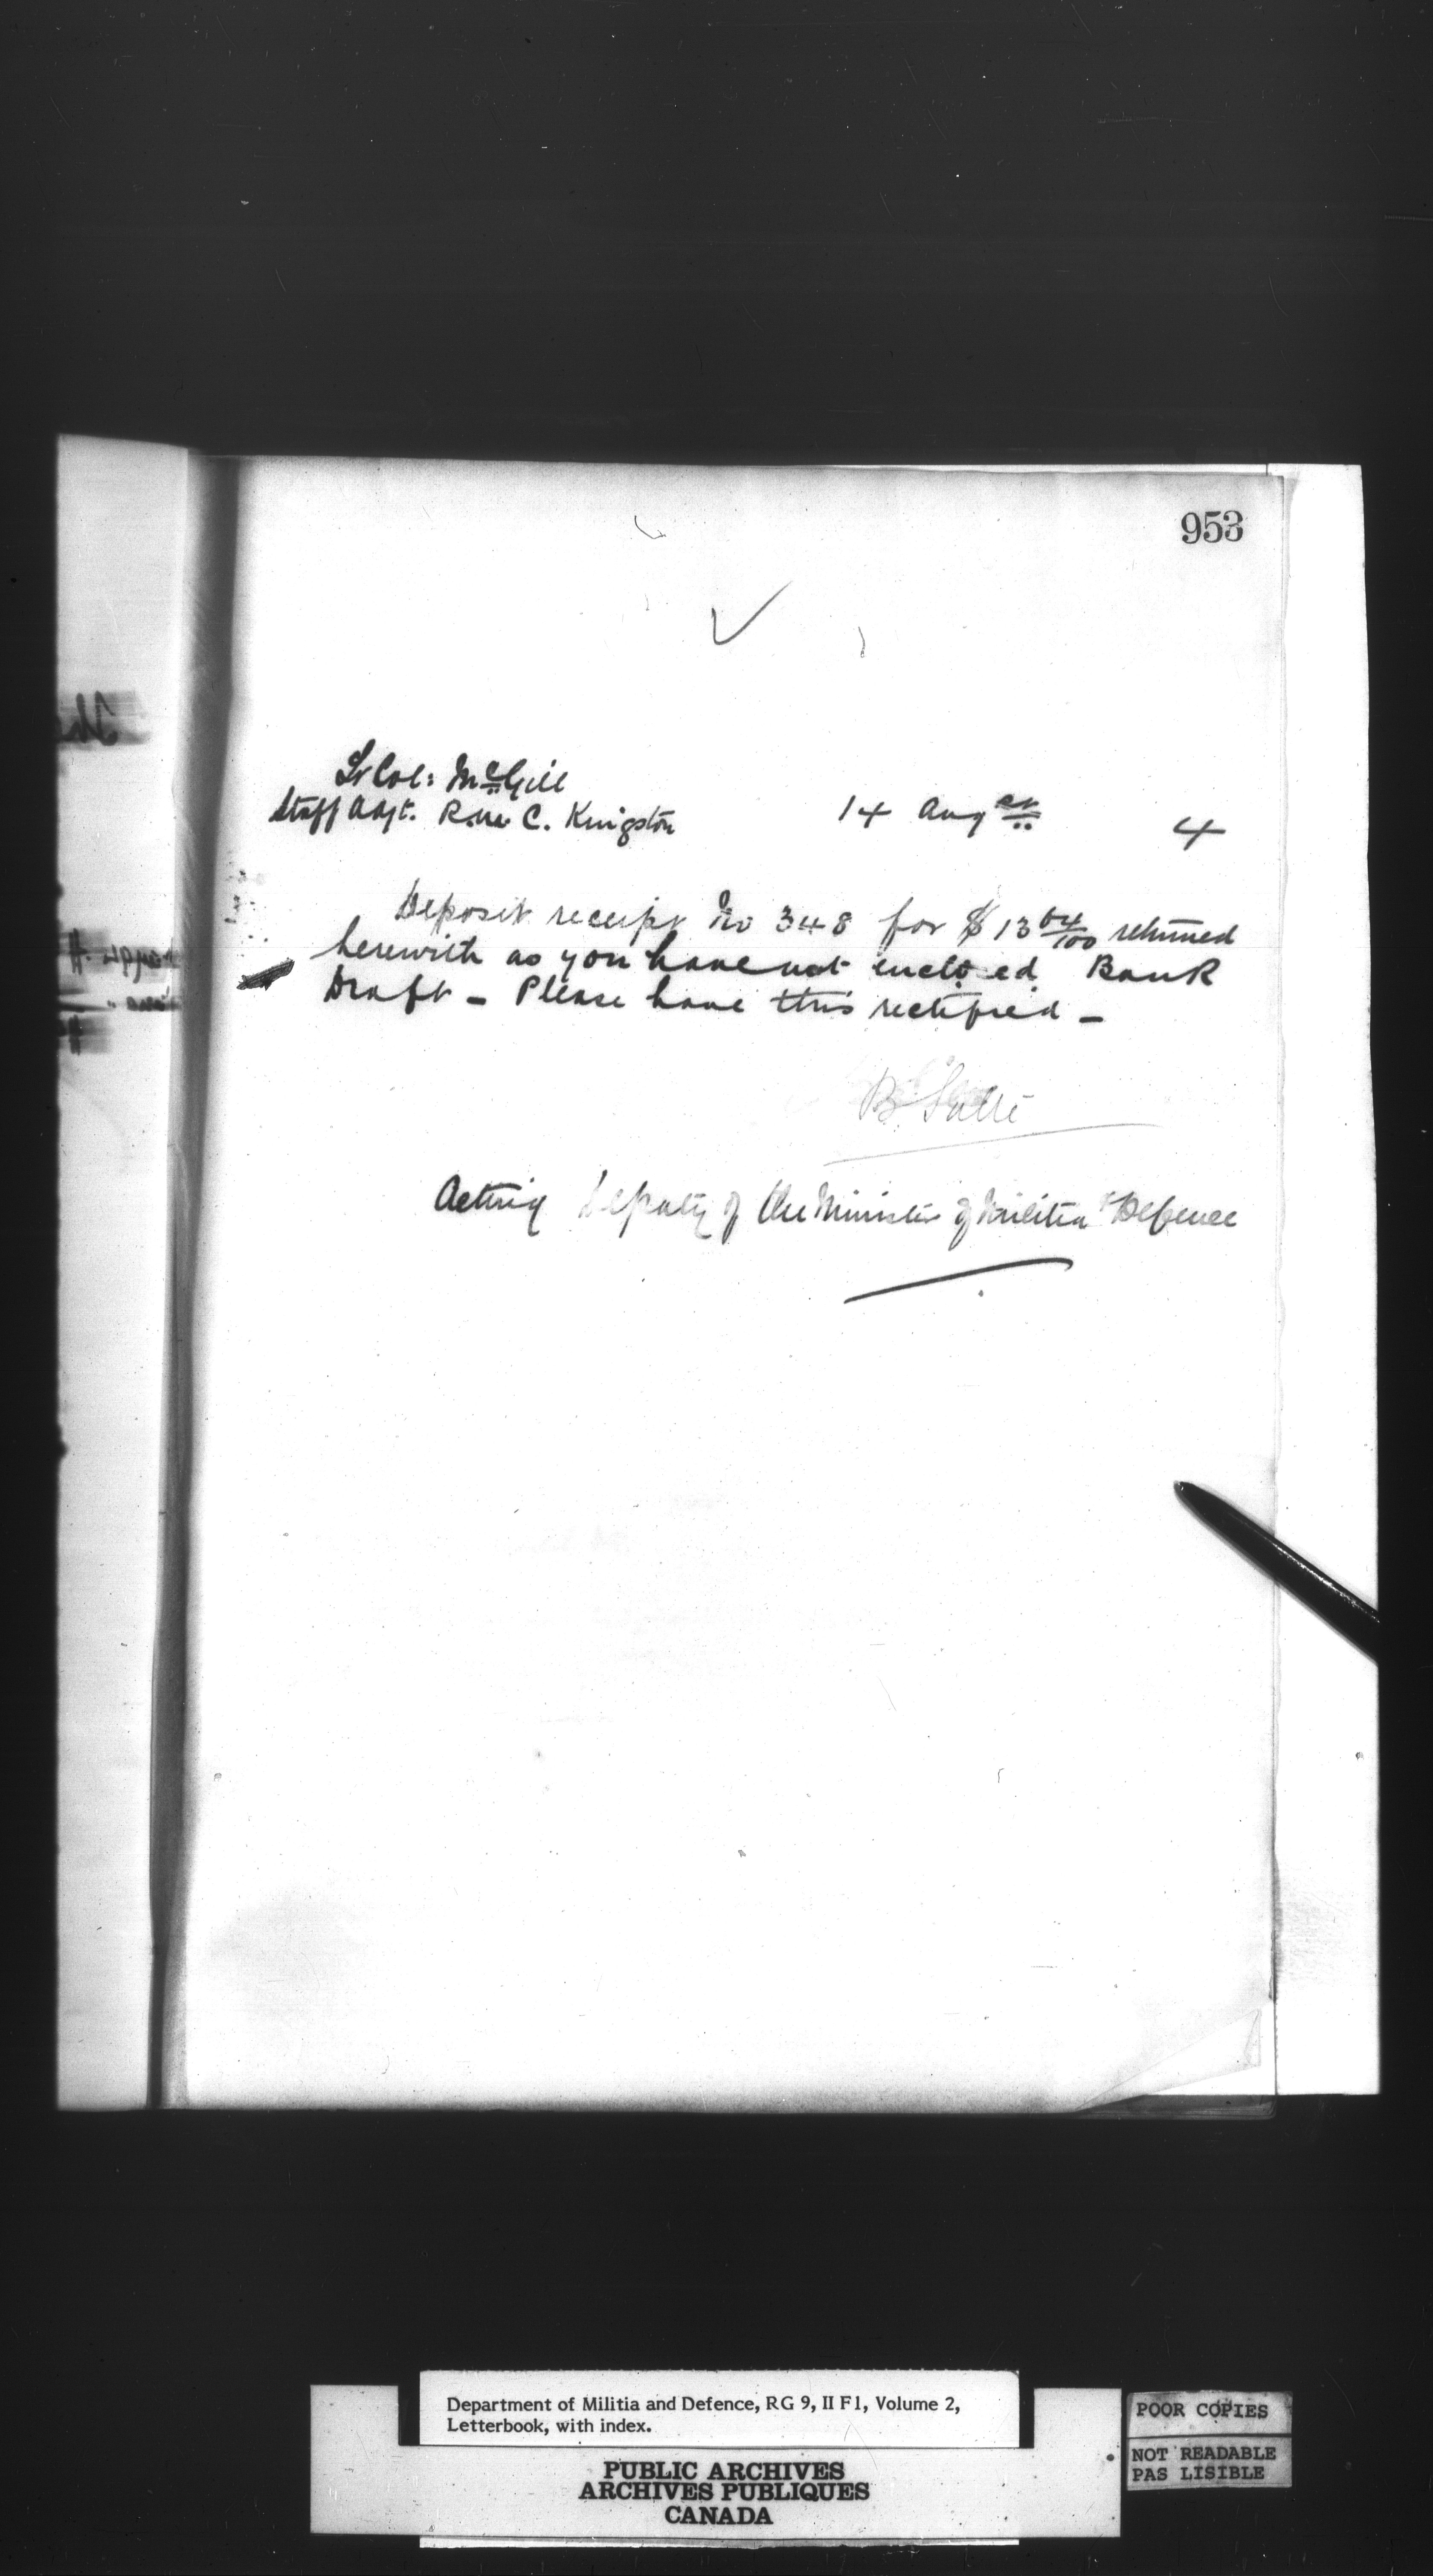 953
Lt Col: McGill
Staff Adjt. R.M.C. Kingston 14 Aug st 4
Deposit receipt No 348 for $13 64/100 returned
herewith as you have not enclosed Bank
Draft – Please have this rectified –
B Sulte
Acting Deputy of the Minister of Militia & Defence
Department of Militia and Defence, RG 9, II F1, Volume 2,
Letterbook, with index.
PUBLIC ARCHIVES
ARCHIVES PUBLIQUES
CANADA
POOR COPIES
NOT READABLE
PAS LISIBLE